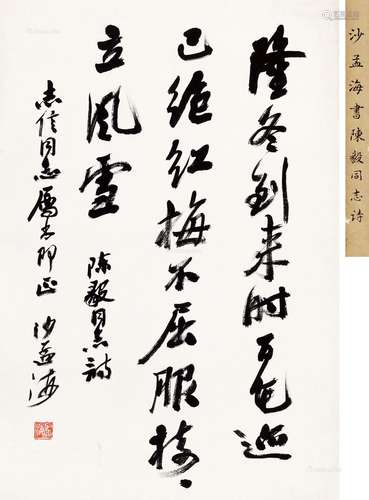 沙孟海書陳毅同志詩
隆冬到来时百花迹
已绝红梅不屈服树〻
立风雪
陈毅同志詩
志信同志属书即正 沙孟海